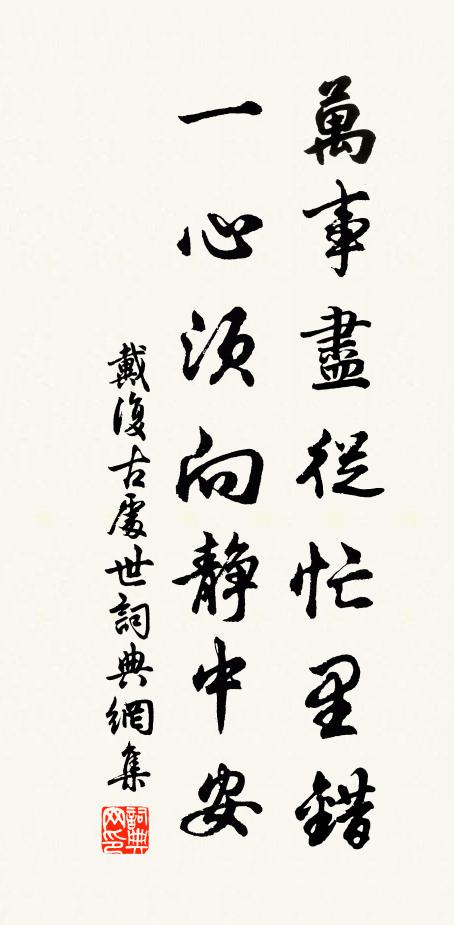 萬事盡從忙里錯
一心須向靜中安
戴復古處世詞典網集
詞典網印